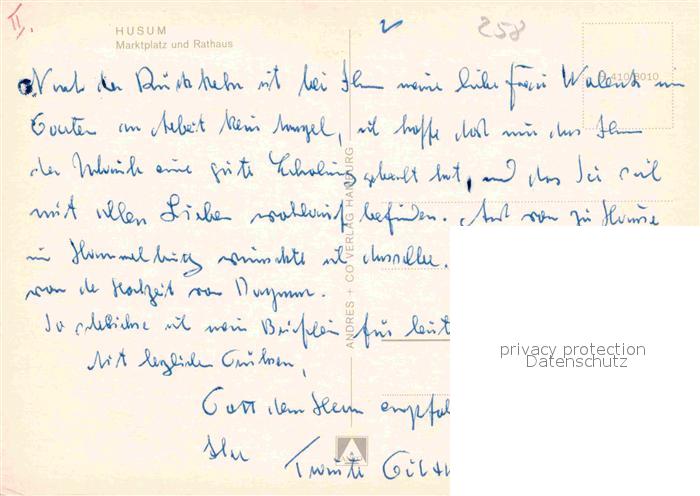 II.
HUSUM
Marktplatz und Rathaus
258
410/8010
Nach der Rückkehr ist bei Ihnen meine liebe Frau im
Garten an Arbeit kein Mangel, ich hoffe daß mir das Ihnen
der Urlaub eine gute Erholung gebracht hat, und das Sie sich
mit allen Lieben wohlauf befinden. Auch von zu Hause
in wünschte ich dasselbe.
von der Hochzeit von Dagmar.
So schließe ich mein Brieflein für heut
Mit herzlichen Grüßen,
Gott dem Herrn empfoh
Ihre
ANDRES + CO VERLAG HAMBURG
privacy protection
Datenschutz